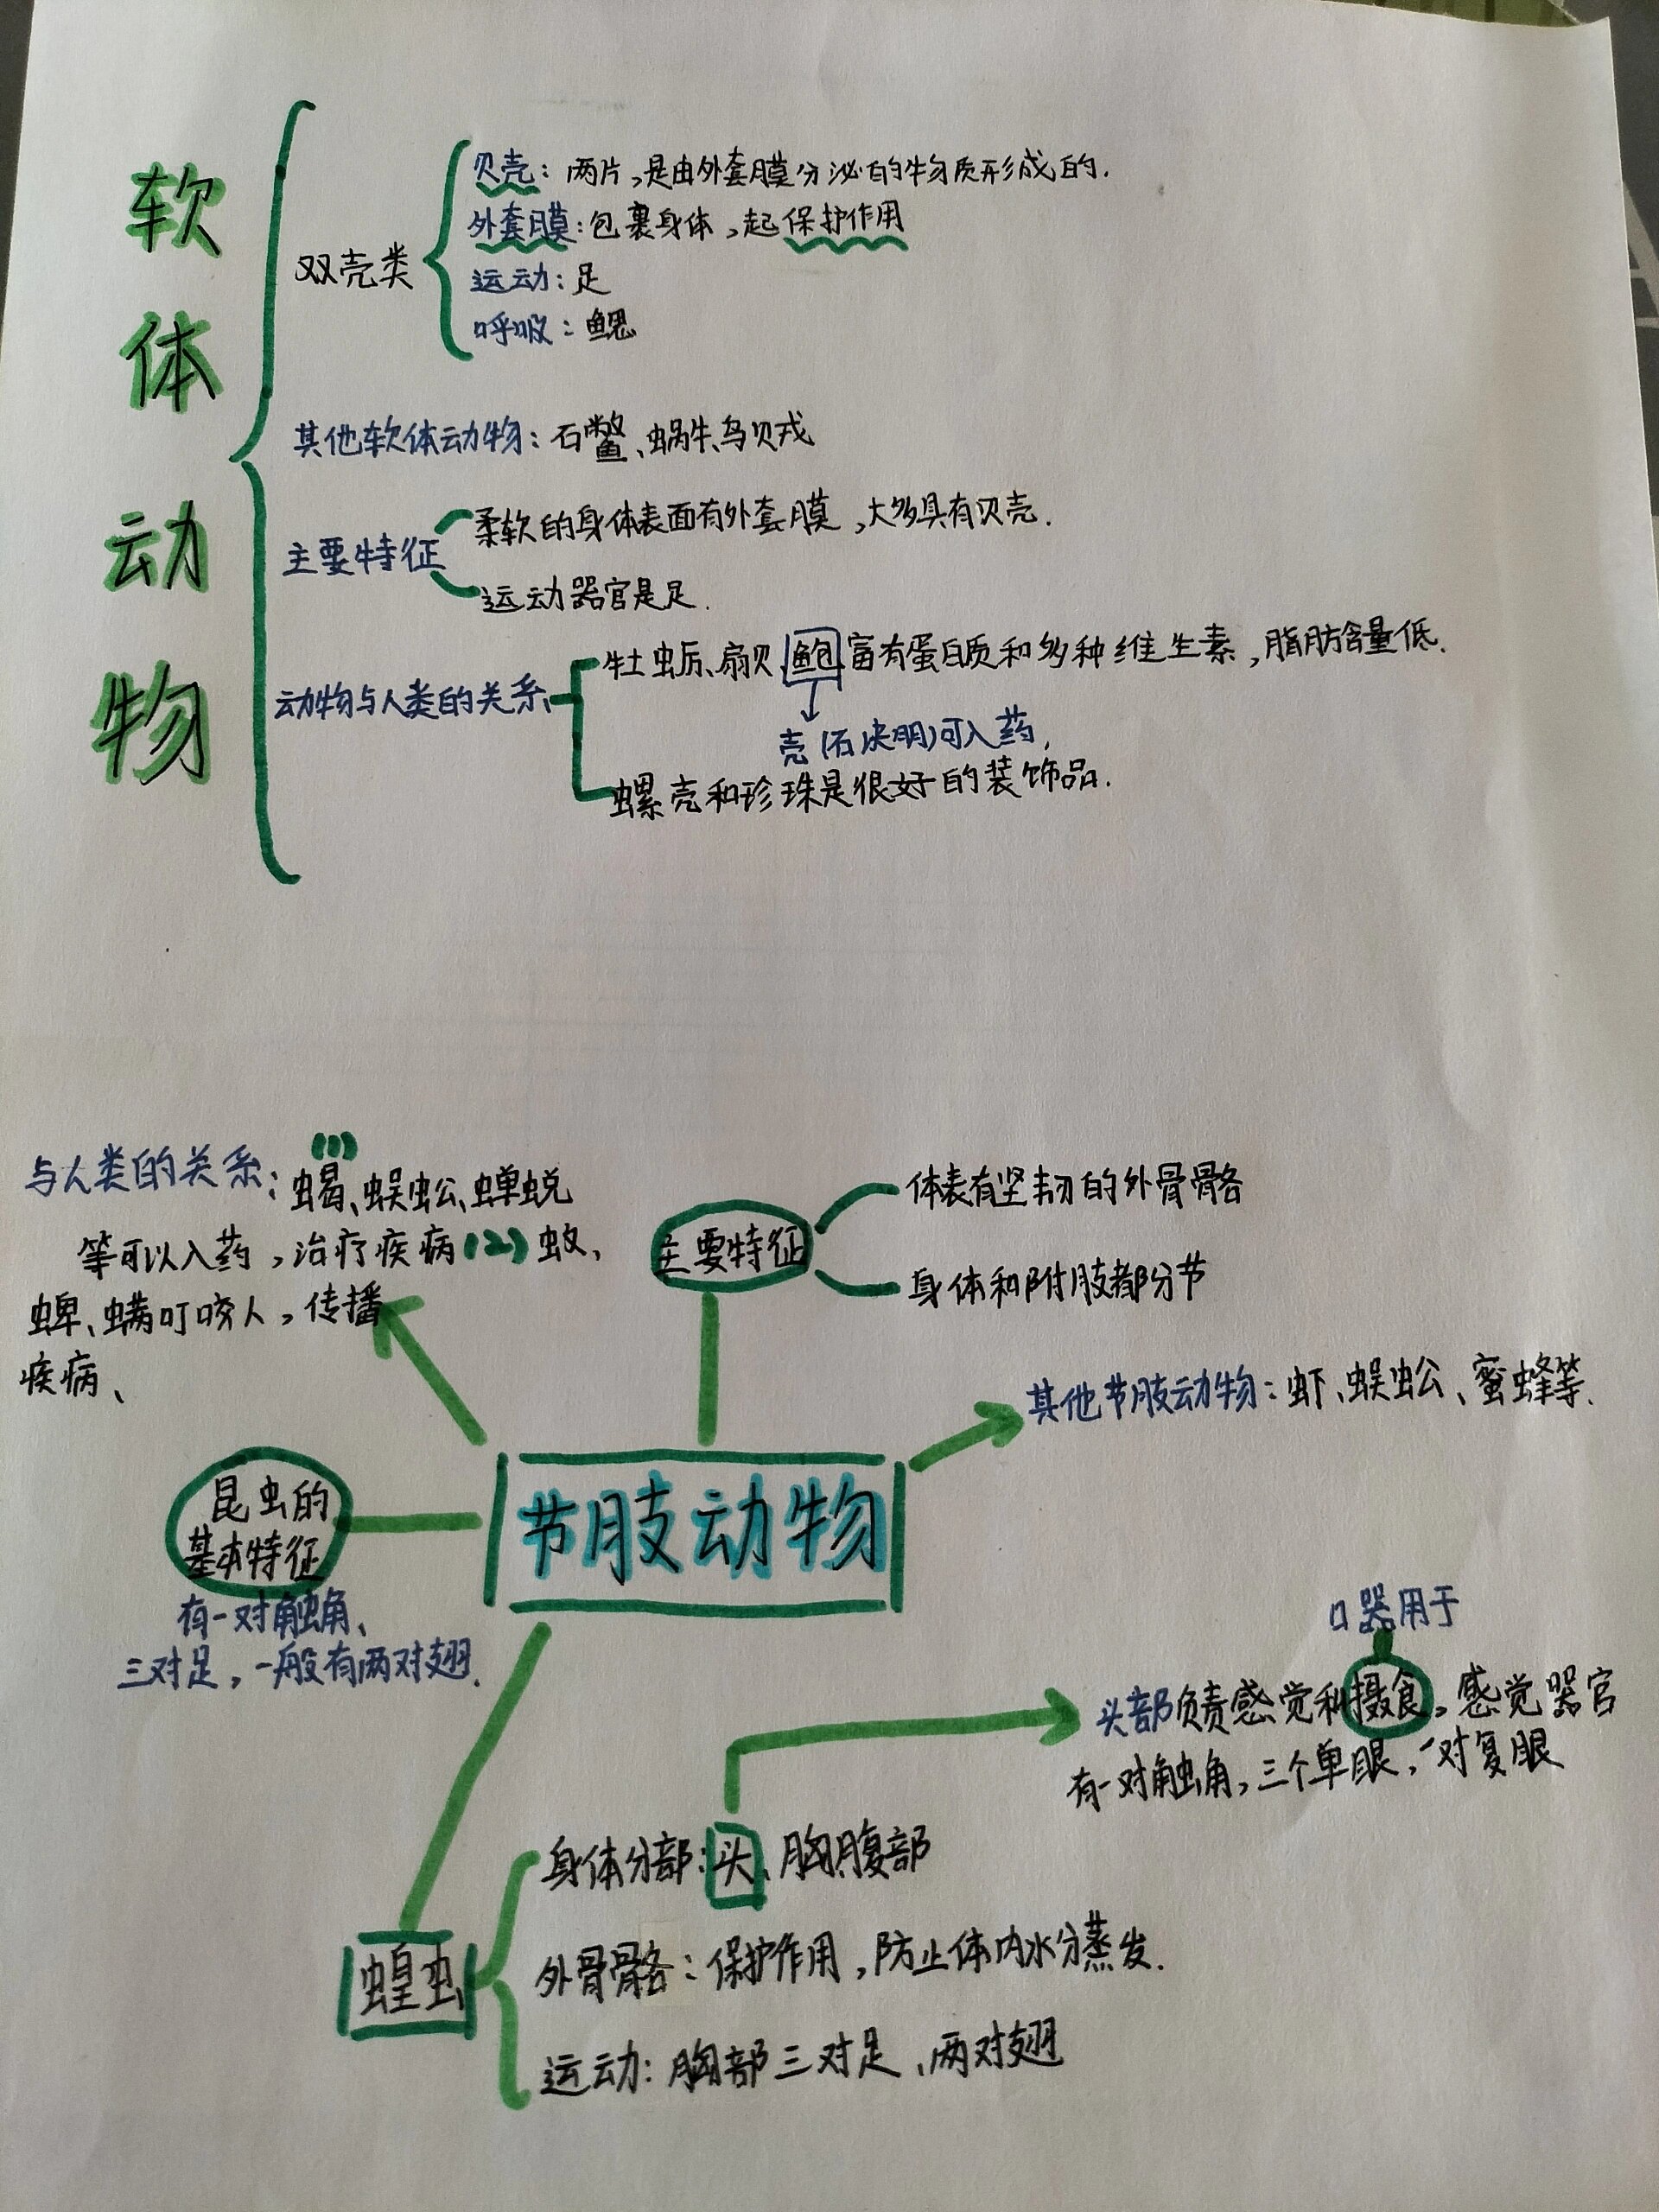 软体动物
双壳类
贝壳：两片，是由外套膜分泌的物质形成的.
外套膜：包裹身体，起保护作用
运动：足
呼吸：鳃
其他软体动物：石鳖、蜗牛、乌贝戎
主要特征
柔软的身体表面有外套膜，大多具有贝壳.
运动器官是足.
动物与人类的关系
牡蛎、扇贝、鲍富有蛋白质和多种维生素，脂肪含量低.
壳(石决明)可入药,
螺壳和珍珠是很好的装饰品.
与人类的关系：(1)蝎、蜈蚣、蝉蜕
等可以入药，治疗疾病(2)蚊、
蜱、螨叮咬人，传播
疾病、
主要特征
体表有坚韧的外骨骼
身体和附肢都分节
其他节肢动物：虾、蜈蚣、蜜蜂等.
节肢动物
昆虫的
基本特征
有一对触角、
三对足，一般有两对翅.
口器用于
头部负责感觉和摄食，感觉器官
有一对触角，三个单眼，一对复眼
蝗虫
身体分部：头、胸、腹部
外骨骼：保护作用，防止体内水分蒸发.
运动：胸部三对足、两对翅